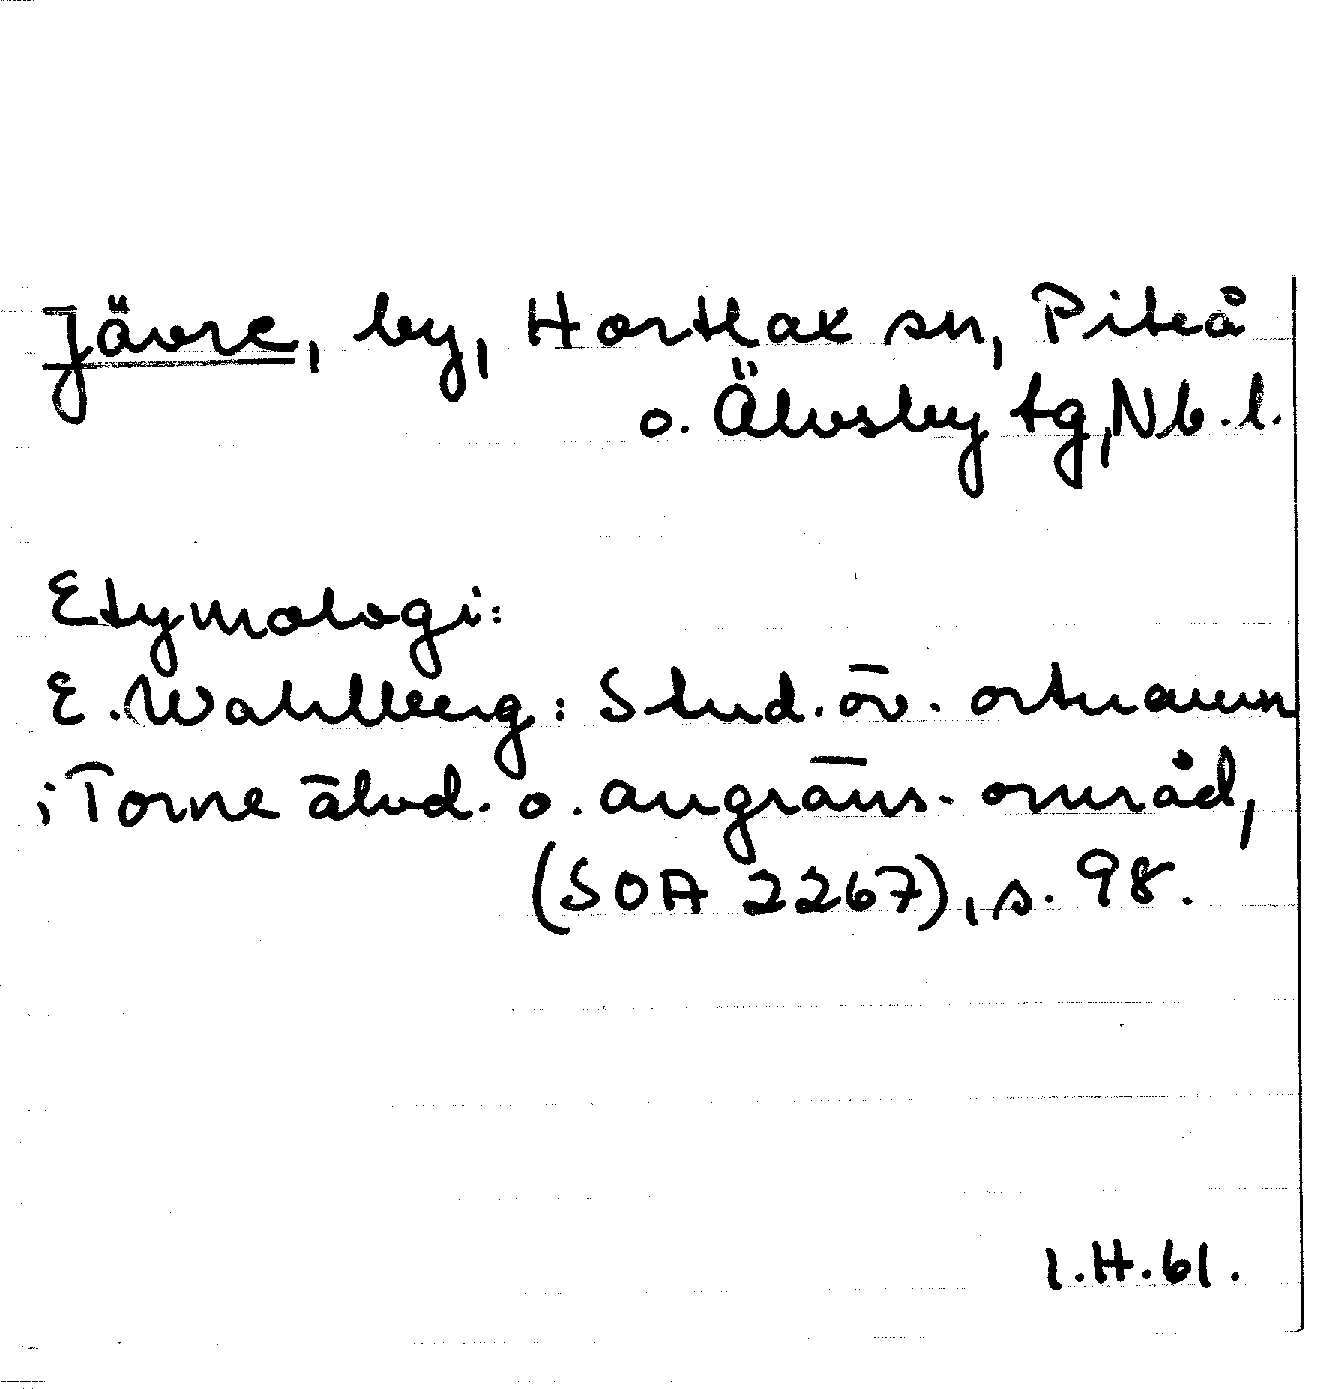 Jävre, by, Hortlax sn, Piteå
o. Älvsby tg, Nb. l.
Etymologi:
E. Wahlberg: Stud. öv. ortnamn
i Torne älvd. o. angräns. områd,
(SOA 2267), s. 98.
I.H.61.